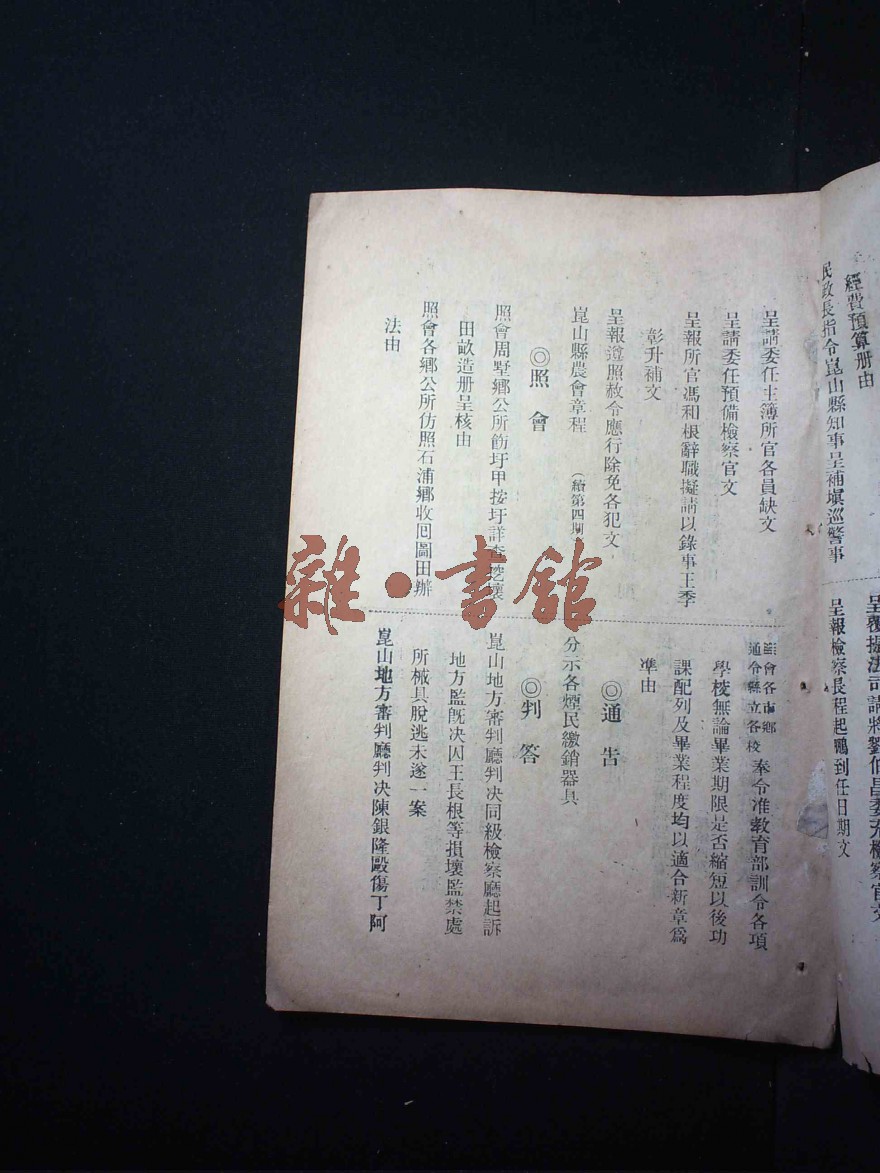 經費預算册由
民政長指令崑山縣知事呈補塡巡警事
呈報檢察長程起鵬到任日期文
呈請委任主簿所官各員缺文
呈請委任預備檢察官文
呈報所官馮和根辭職擬請以錄事王季
彰升補文
呈報遵照赦令應行除免各犯文
崑山縣農會章程 (續第四期)
◎照會
照會周墅鄉公所飭圩甲按圩詳查
田畝造册呈核由
照會各鄉公所仿照石浦鄉收囘圖田辦
法由
照會各市鄉
通令縣立各校 奉令准敎育部訓令各項
學校無論畢業期限是否縮短以後功
課配列及畢業程度均以適合新章爲
準由
◎通告
分示各煙民繳銷器具
◎判答
崑山地方審判廳判决同級檢察廳起訴
地方監旣决囚王長根等損壞監禁處
所械具脫逃未遂一案
崑山地方審判廳判决陳銀隆毆傷丁阿
雜·書館